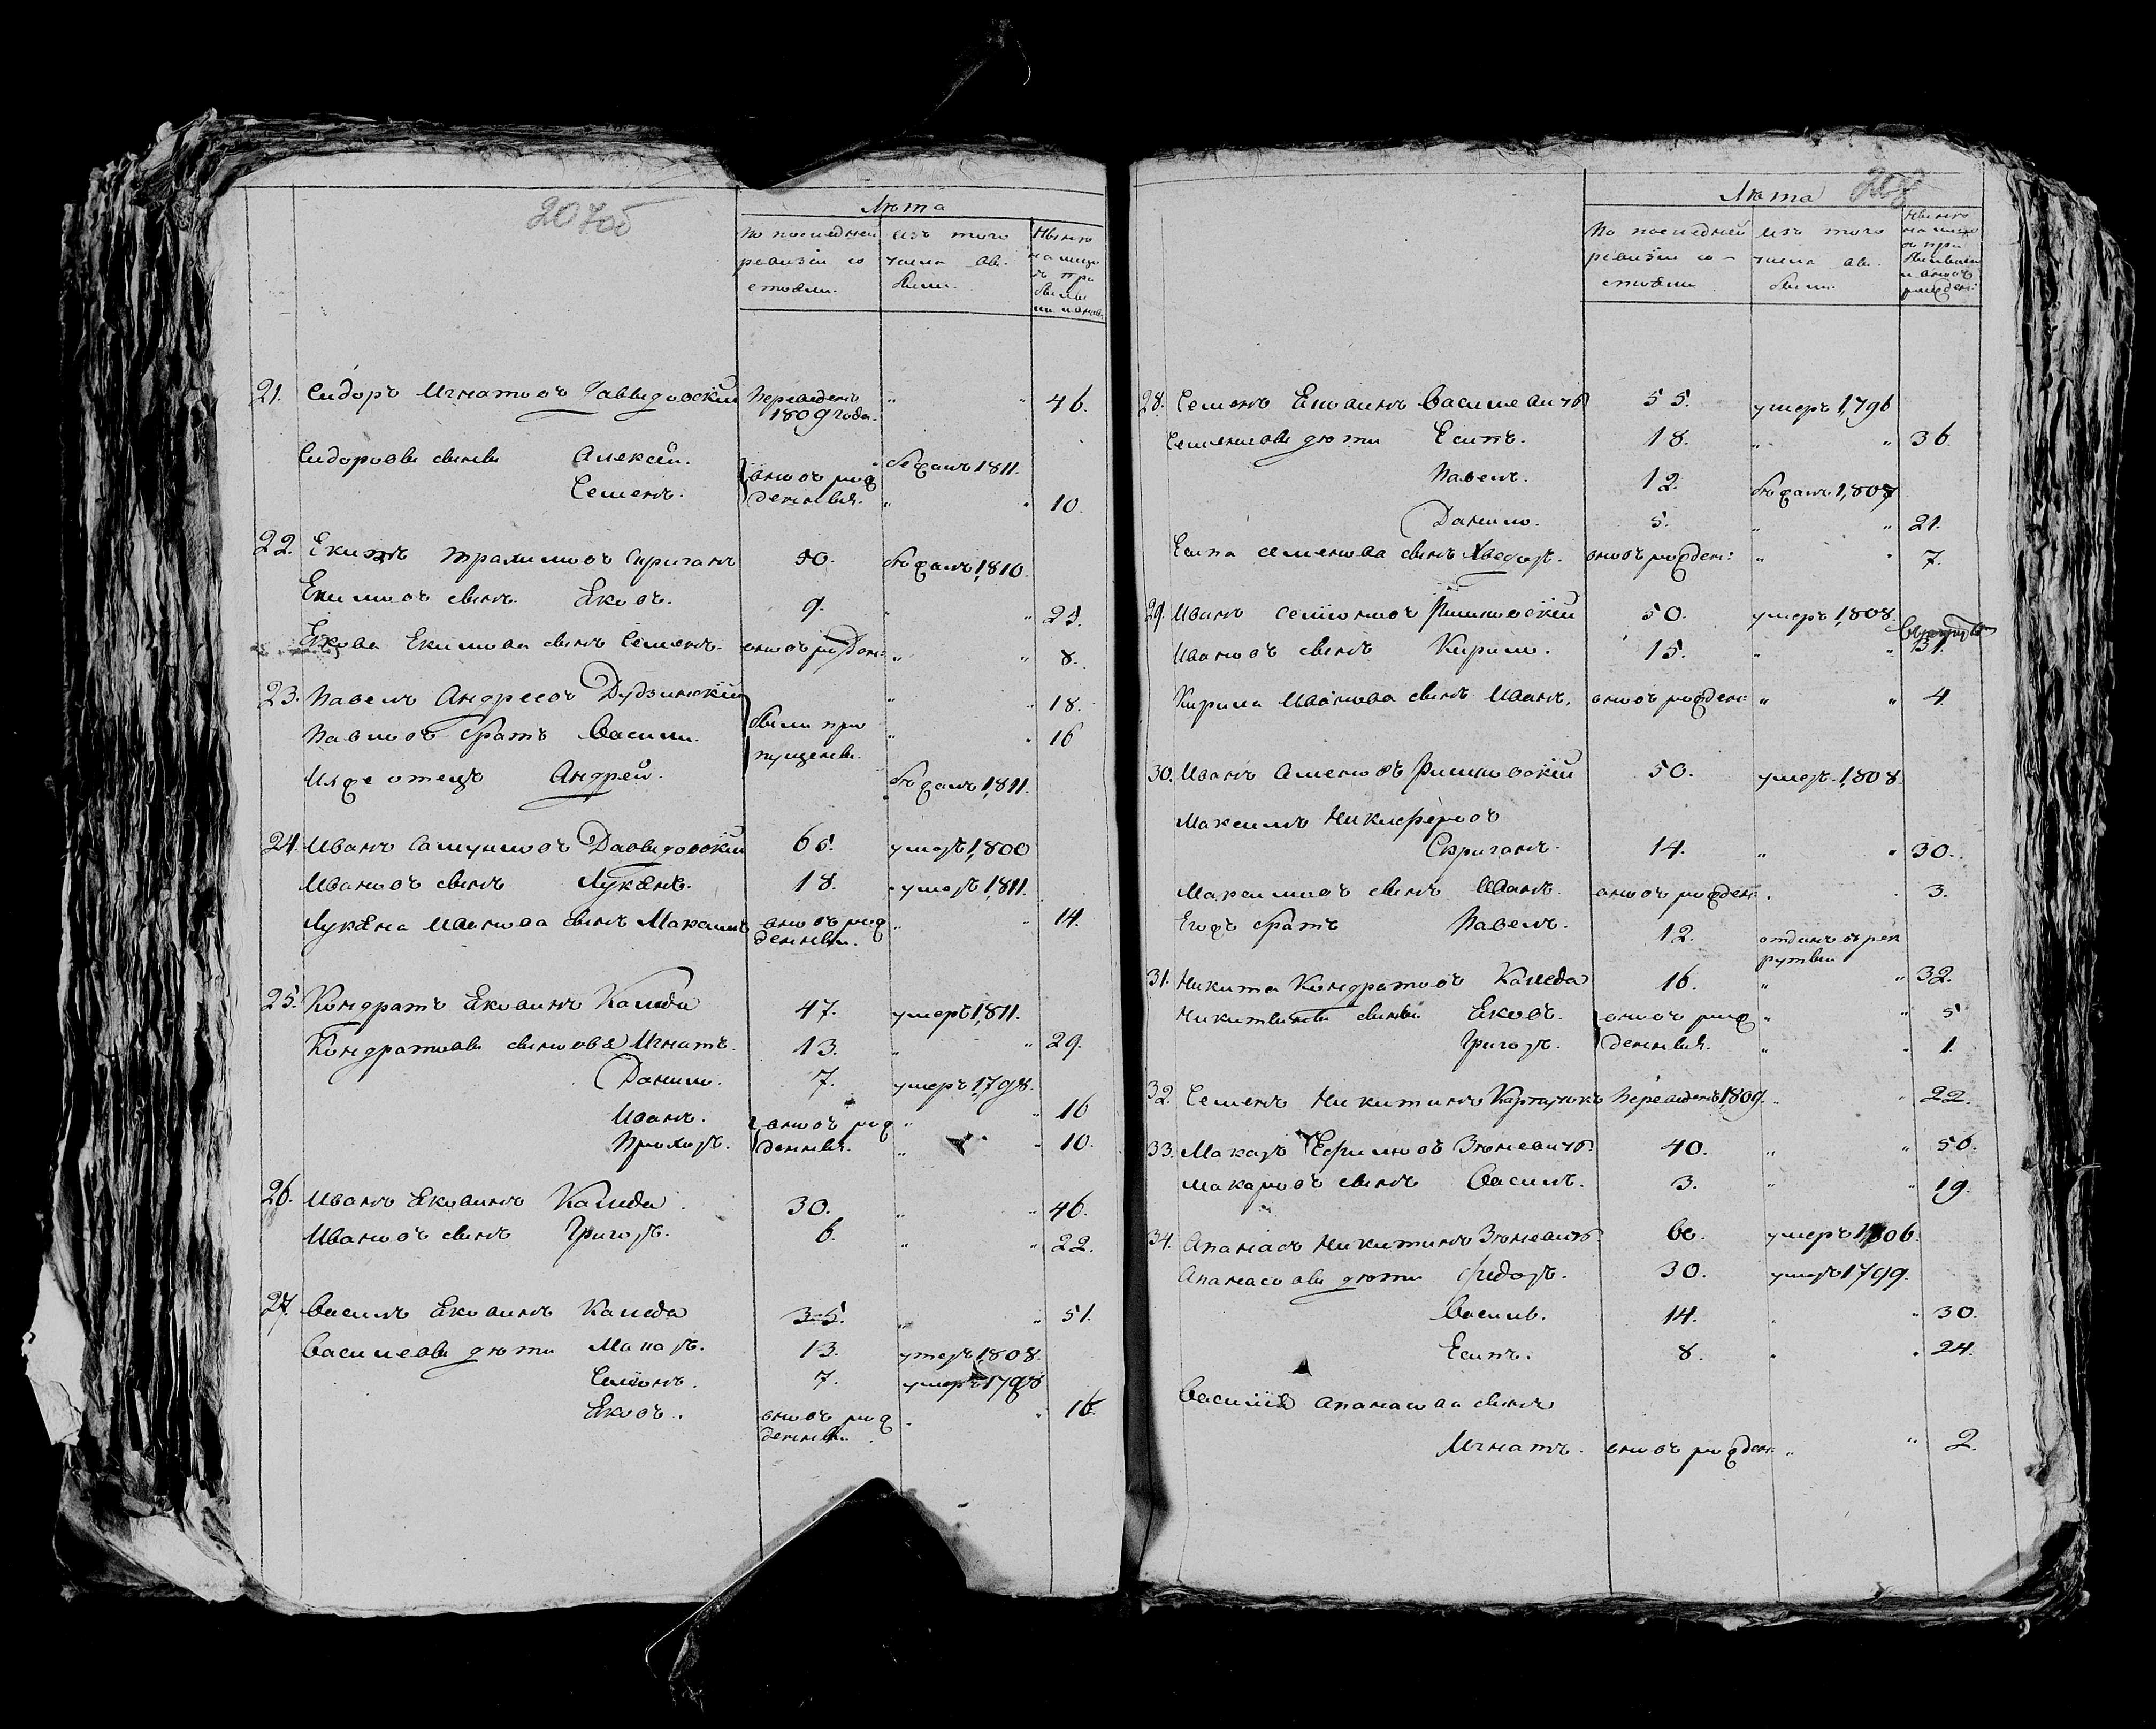 207об
Лѣта
По последней изъ того Нынѣ
ревизіи со числа вы на лицо
стояли. были. съ при
былы
ми и вновь
21. Сидоръ Игнатовъ Давыдовскій переведенъ " " 46.
1809 года.
Сидоровы сыны Алексей. вновь рож бѣжалъ 1811.
Семенъ. денныя. " " 10.
22. Екимъ Трахимовъ Скриганъ 50. бѣжалъ 1810.
Екимовъ сынъ Яковъ. 9. " " 25.
Якова Екимова сынъ Семенъ. вновь рожден: " " 8.
23. Павелъ Андреевъ Дудзинскій " " 18.
Павловъ братъ Василь. были про " " 16
пущены.
Ихже отецъ Андрей. бѣжалъ 1811.
24. Иванъ Самуиловъ Давыдовскій 65. умеръ 1800
Ивановъ сынъ Лукянъ. 18. умеръ 1811.
Лукяна Иванова сынъ Максимъ вновь рож " " 14.
денный.
25. Кондратъ Яковинъ Каледа 47. умеръ 1811.
Кондратовы сыновя Игнатъ. 13. " " 29.
Данило. 7. умеръ 1798.
Иванъ. вновь рож " " 16
Прохоръ. денныя. " " 10.
26. Иванъ Яковинъ Каледа 30. " " 46.
Ивановъ сынъ Григоръ. 6. " " 22.
27. Василь Яковинъ Каледа 35. " " 51.
Василевы дѣти Макаръ. 13. умеръ 1808.
Семонъ. 7. умеръ 1798
Яковъ. вновь рож " " 16.
денный.
208
Лѣта
По последней изъ того Нынѣ
ревизіи со- числа вы на лицо
стояли были. съ при
былыми
и вновь
рожден:
28. Семенъ Яковинъ Василевичъ 55. умеръ 1796
Семеновы дѣти Есипъ. 18. " " 36.
Павелъ. 12. бѣжалъ 1807
Данило. 5. " " 21.
Есипа Семенова сынъ Хведоръ. вновь рожден: " " 7.
29. Иванъ Семоновъ Рышковскій 50. умеръ 1808.
Ивановъ сынъ Кирило. 15. " " 31.
Кирила Иванова сынъ Иванъ. вновь рожден: " " 4.
30. Иванъ Аменовъ Рышковскій 50. умеръ 1808.
Максимъ Никиферовъ
Скриганъ. 14. " " 30.
Максимовъ сынъ Иванъ. вновь рожден: " " 3.
Егожъ братъ Павелъ. 12. отданъ въ рек
руты
31. Никита Кондратовъ Каледа 16. " " 32.
Никитины сыны Яковъ. вновь рож " " 5
Григоръ. денныя. " " 1.
32. Семенъ Никитинъ переведенъ 1809. " " 22.
33. Макаръ Ефимовъ Зѣневичъ 40. " " 56.
Макаровъ сынъ Василь. 3. " " 19.
34. Апанасъ Никитинъ Зѣневичъ 60. умеръ 1806.
Апанасовы дѣти Федоръ. 30. умеръ 1799.
Василь. 14. " " 30.
Есипъ. 8. " " 24.
Василія Апанасова сынъ
Игнатъ. вновь рожден: " " 2.